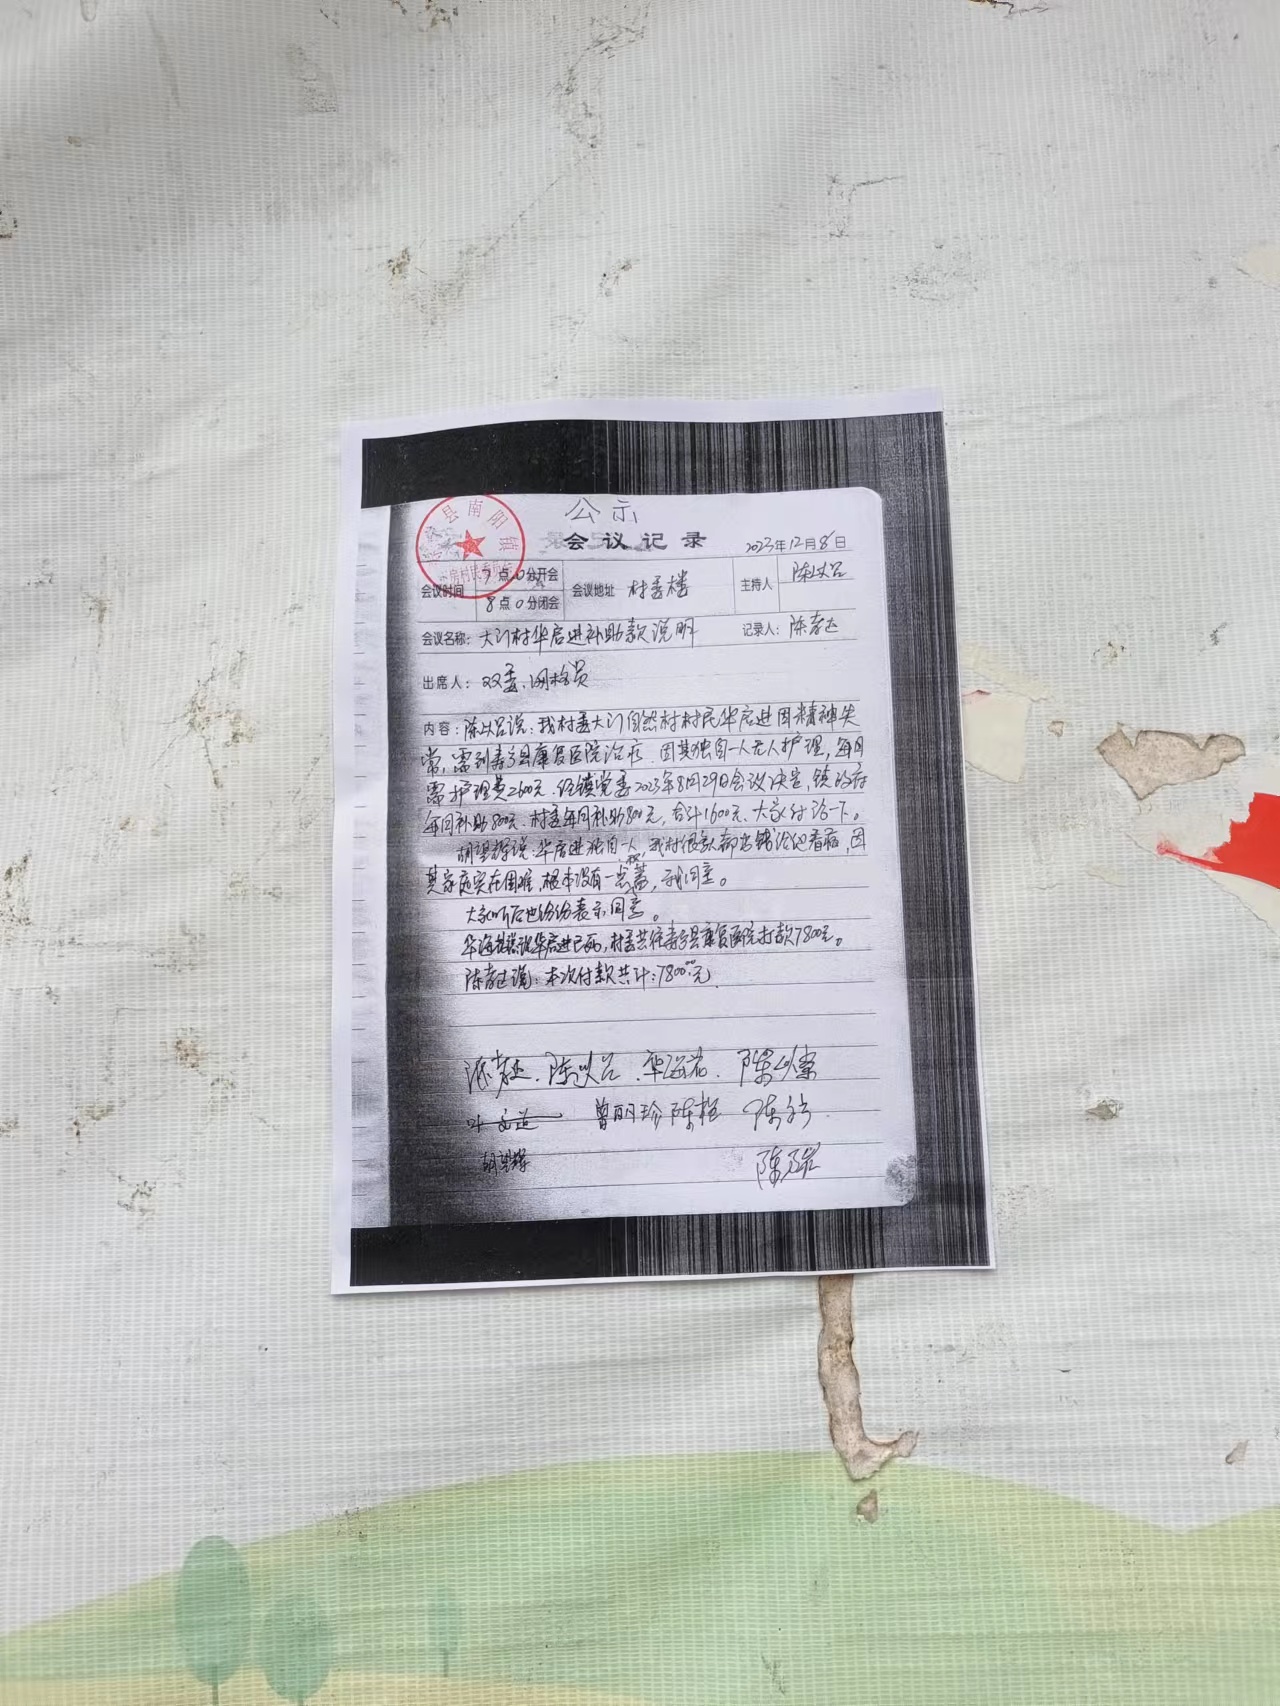 公示
会议记录 2023年12月8日
县南阳镇
房村民委员会
会议时间 7点0分开会 会议地址 村委楼 主持人 陈以吕
8点0分闭会
会议名称：大门村华启进补助款说明 记录人：陈孝达
出席人：双委、网格员
内容：陈以吕说：我村委大门自然村村民华启进因精神失
常，需到寿宁县康复医院治疗．因其独自一人无人护理，每月
需护理费2600元．经镇党委2023年8月29日会议决定，镇政府
每月补助800元．村委每月补助800元，合计1600元、大家讨论一下。
胡望辉说：华启进独自一人，我村很多人都出钱给他看病，因
其家庭实在困难，根本没有一点积蓄，我同意。
大家听后也纷纷表示同意。
华海 说华启进已死，村委共往寿宁县康复医院打款7800元。
陈孝达说：本次付款共计：7800.00元．
陈孝达．陈以吕．华海 ．陈以
曾丽珍 陈 陈
胡望辉 陈